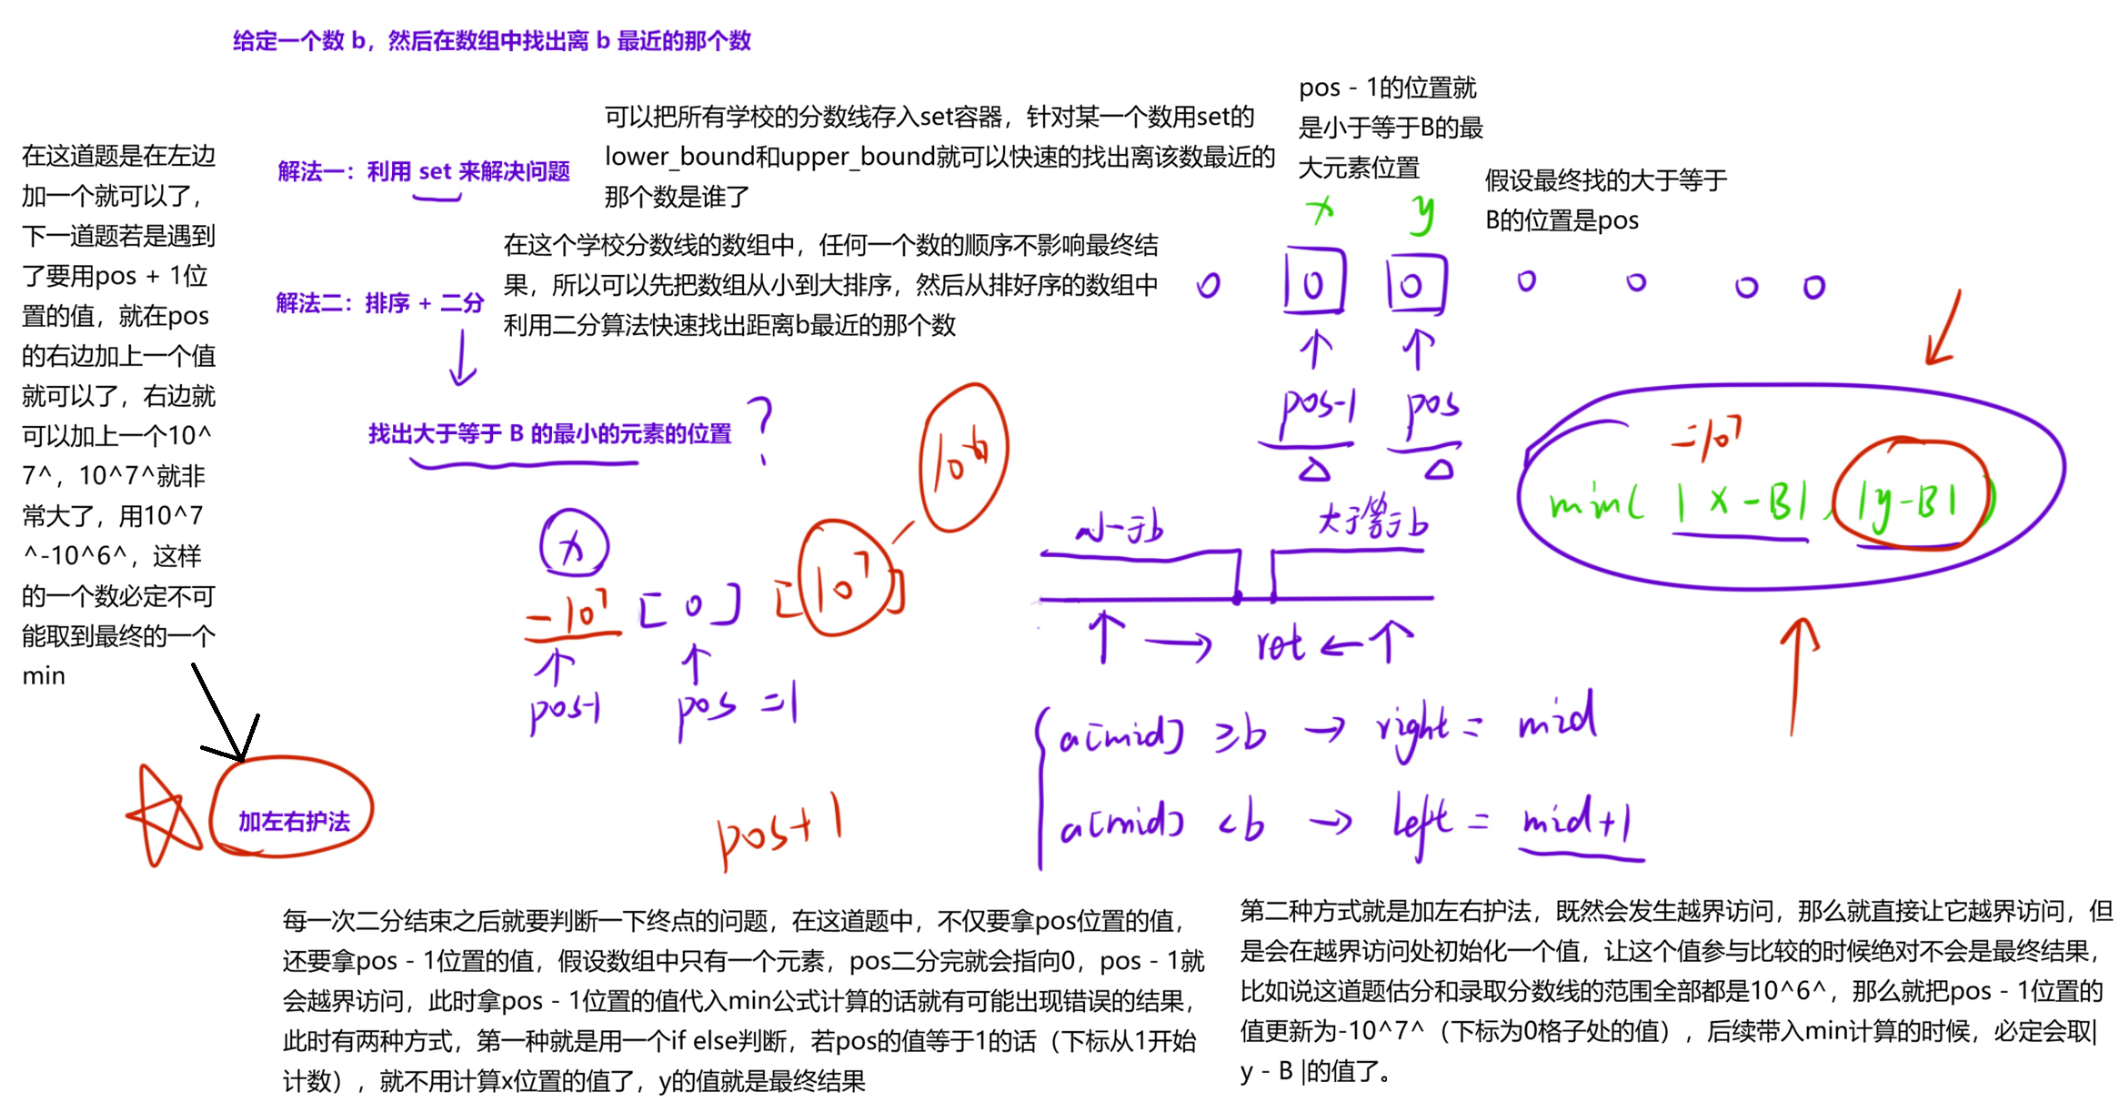 给定一个数 b，然后在数组中找出离 b 最近的那个数
在这道题是在左边
加一个就可以了，
下一道题若是遇到
了要用pos + 1位
置的值，就在pos
的右边加上一个值
就可以了，右边就
可以加上一个10^
7^，10^7^就非
常大了，用10^7
^-10^6^，这样
的一个数必定不可
能取到最终的一个
min
解法一：利用 set 来解决问题
可以把所有学校的分数线存入set容器，针对某一个数用set的
lower_bound和upper_bound就可以快速的找出离该数最近的
那个数是谁了
解法二：排序 + 二分
在这个学校分数线的数组中，任何一个数的顺序不影响最终结
果，所以可以先把数组从小到大排序，然后从排好序的数组中
利用二分算法快速找出距离b最近的那个数
找出大于等于 B 的最小的元素的位置 ?
pos - 1的位置就
是小于等于B的最
大元素位置
假设最终找的大于等于
B的位置是pos
x y
0 0 0 0 0 0 0
pos-1 pos
=10^7
min( |x-B| , |y-B| )
x
-10^7 [0] [10^7] - 10^6
pos-1 pos =1
小于b 大于等于b
ret
a[mid] ≥b → right = mid
a[mid] <b → left = mid+1
加左右护法
pos+1
每一次二分结束之后就要判断一下终点的问题，在这道题中，不仅要拿pos位置的值，
还要拿pos - 1位置的值，假设数组中只有一个元素，pos二分完就会指向0，pos - 1就
会越界访问，此时拿pos - 1位置的值代入min公式计算的话就有可能出现错误的结果，
此时有两种方式，第一种就是用一个if else判断，若pos的值等于1的话（下标从1开始
计数），就不用计算x位置的值了，y的值就是最终结果
第二种方式就是加左右护法，既然会发生越界访问，那么就直接让它越界访问，但
是会在越界访问处初始化一个值，让这个值参与比较的时候绝对不会是最终结果，
比如说这道题估分和录取分数线的范围全部都是10^6^，那么就把pos - 1位置的
值更新为-10^7^（下标为0格子处的值），后续带入min计算的时候，必定会取|
y - B |的值了。